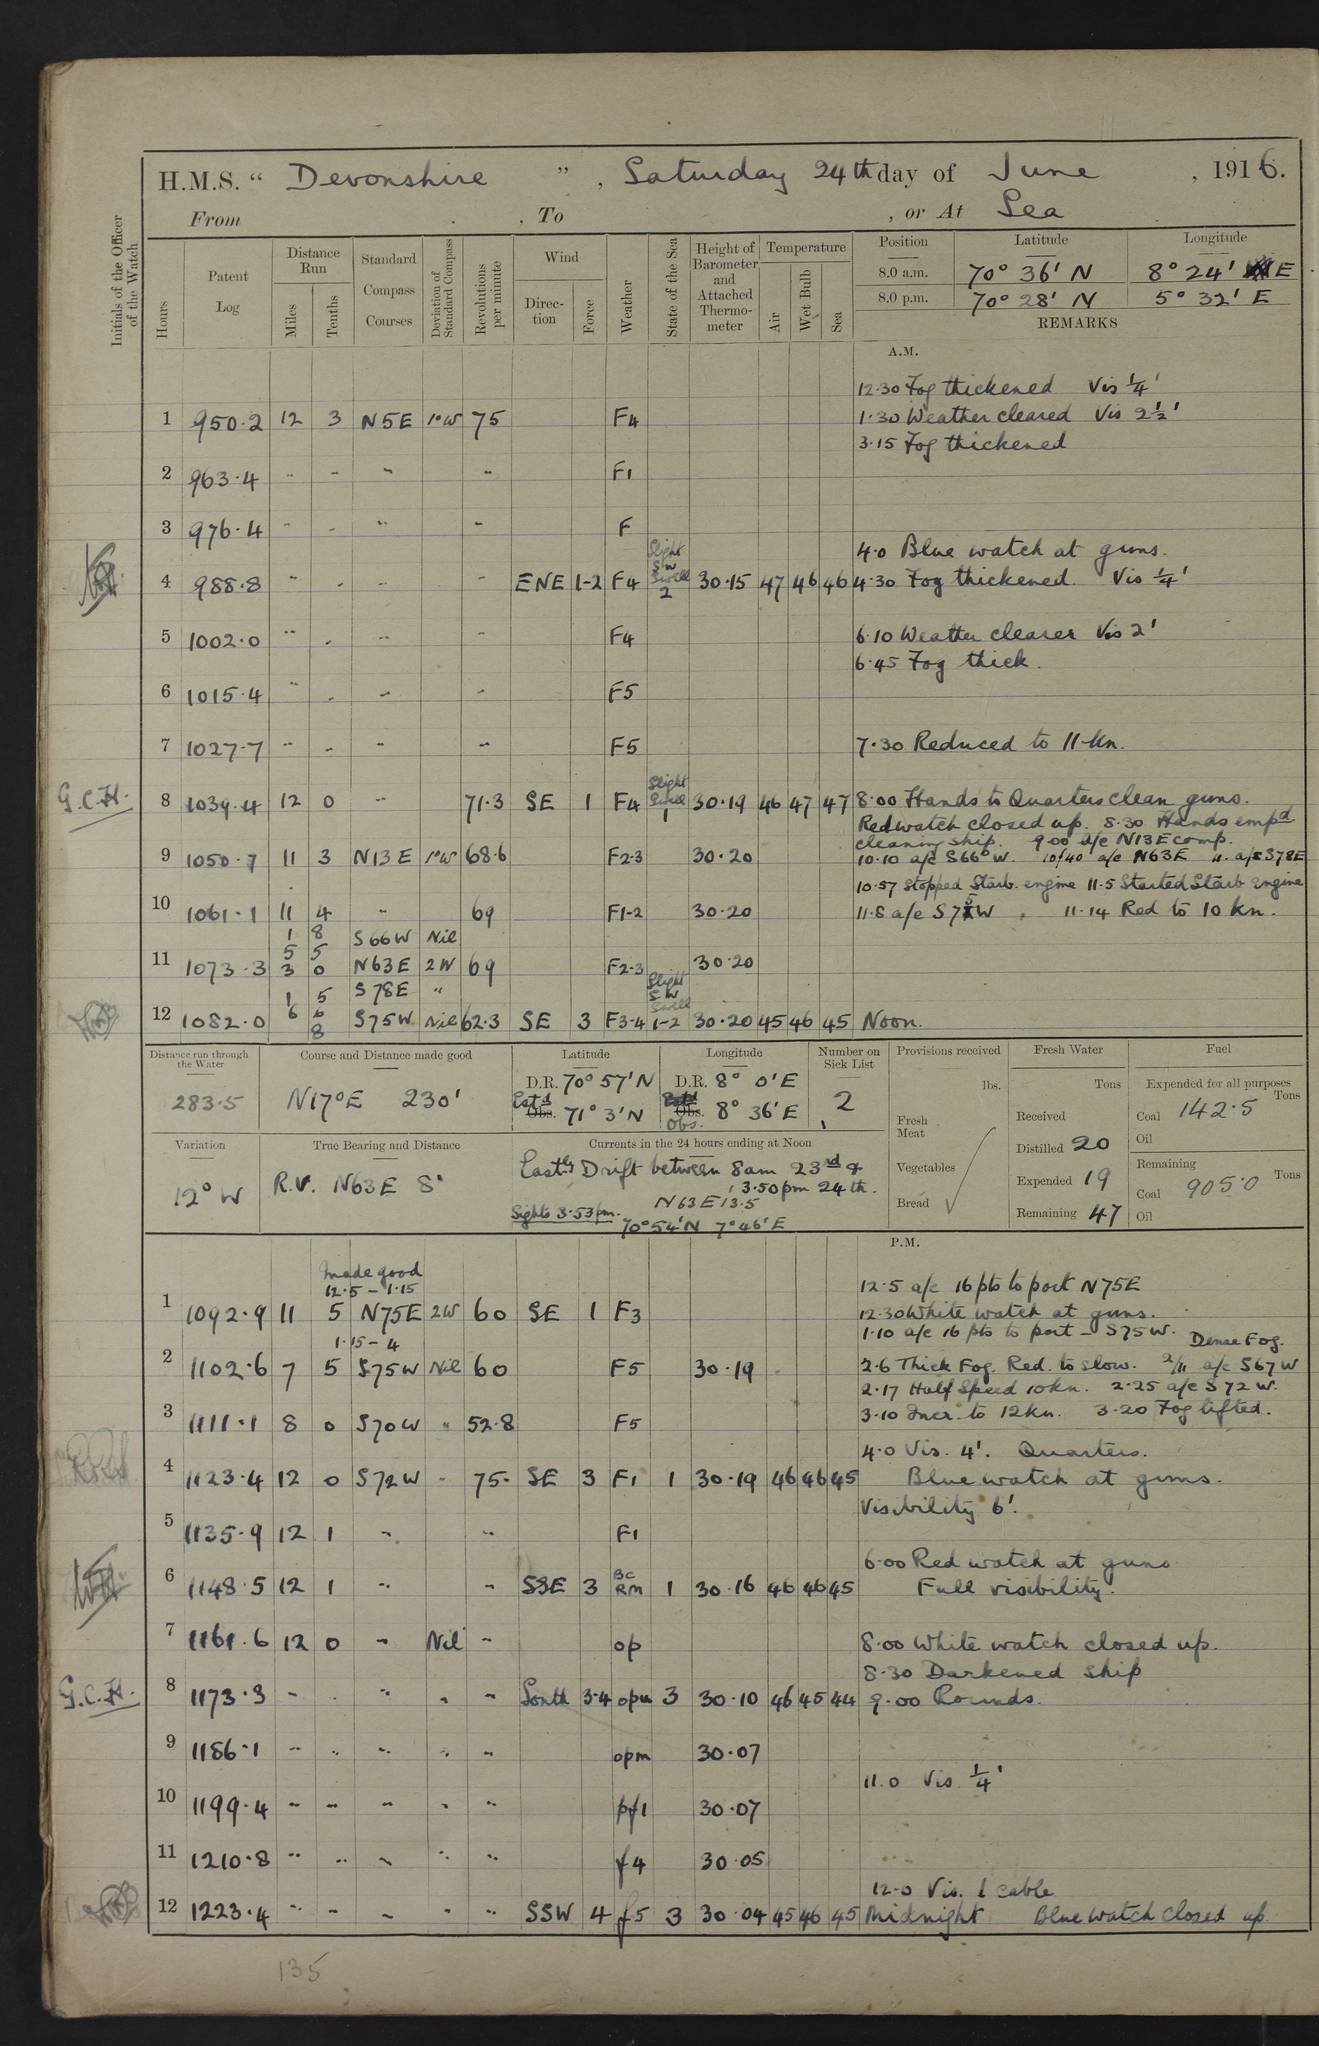 H.M.S. “ Devonshire ” , Saturday 24th day of June , 1916.
From , To , or At Sea
Initials of the Officer of the Watch
Hours
Patent Log
Distance Run
Miles Tenths
Standard Compass Courses
Deviation of Standard Compass
Revolutions per minute
Wind
Direc-tion Force
Weather
State of the Sea
Height of Barometer and Attached Thermo-meter
Temperature
Air Wet Bulb Sea
Position Latitude Longitude
8.0 a.m. 70° 36' N 8° 24' E
8.0 p.m. 70° 28' N 5° 32' E
REMARKS
A.M.
12.30 Fog thickened Vis ¼'
1 950.2 12 3 N5E 1°W 75 F4 1.30 Weather cleared Vis 2½'
3.15 Fog thickened
2 963.4 " " " " F1
3 976.4 " " " " F
4.0 Blue watch at guns.
4 988.8 " " " " ENE 1-2 F4 Slight SW Swell 2 30.15 47 46 46 4.30 Fog thickened. Vis ¼'
5 1002.0 " " " " F4 6.10 Weather clearer Vis 2'
6.45 Fog thick.
6 1015.4 " " " " F5
7 1027.7 " " " " F5 7.30 Reduced to 11 kn.
G.C.H. 8 1039.4 12 0 " 71.3 SE 1 F4 Slight Swell 1 30.19 46 47 47 8.00 Hands to Quarters clean guns.
Red watch closed up. 8.30 Hands empd
cleaning ship. 9.00 a/c N13E comp.
9 1050.7 11 3 N13E 1°W 68.6 F2-3 30.20 10.10 a/c S66°W. 10/40 a/c N63E a/c S78E
10.57 Stopped Starb. engine 11.5 Started Starb engine
10 1061.1 11 4 " 69 F1-2 30.20 11.8 a/c S75W 11.14 Red to 10 kn.
1 8 S66W Nil
5 5
11 1073.3 3 0 N63E 2W 69 F2-3 30.20
1 5 S78E "
12 1082.0 6 6 8 S75W Nil 62.3 SE 3 F3-4 Slight SW Swell 1-2 30.20 45 46 45 Noon.
Distance run through the Water
283.5
Course and Distance made good
N17°E 230'
Latitude
D.R. 70° 57' N
Estd Obs. 71° 3' N
Longitude
D.R. 8° 0' E
Obs. 8° 36' E
Obs.
Number on Sick List
2
Provisions received
lbs.
Fresh Meat
Vegetables
Bread
Fresh Water
Tons
Received
Distilled 20
Expended 19
Remaining 47
Fuel
Expended for all purposes
Coal 142.5 Tons
Oil
Remaining
Coal 905.0 Tons
Oil
Variation
12° W
True Bearing and Distance
R.V. N63E 8'
Currents in the 24 hours ending at Noon
Eastly Drift between 8am 23rd &
3.50pm 24th.
N63E 13.5
Sights 3.53pm. 70°54'N 7°46'E
P.M.
made good
12.5 - 1.15 12.5 a/c 16 pts to port N75E
1 1092.9 11 5 N75E 2W 60 SE 1 F3 12.30 White watch at guns.
1.15 - 4 1.10 a/c 16 pts to port - S75W. Dense Fog.
2 1102.6 7 5 S75W Nil 60 F5 30.19 2.6 Thick Fog. Red. to slow. 2/11 a/c S67W
2.17 Half Speed 10kn. 2.25 a/c S72W.
3 1111.1 8 0 S70W " 52.8 F5 3.10 Incr. to 12kn. 3.20 Fog lifted.
4.0 Vis. 4'. Quarters.
4 1123.4 12 0 S72W " 75. SE 3 F1 1 30.19 46 46 45 Blue watch at guns.
Visibility 6'.
5 1135.9 12 1 " " F1
6.00 Red watch at guns
6 1148.5 12 1 " " SSE 3 BC RM 1 30.16 46 46 45 Full visibility.
7 1161.6 12 0 " Nil " op 8.00 White watch closed up.
8.30 Darkened ship
G.C.H. 8 1173.3 " " " " " South 3-4 opm 3 30.10 46 45 44 9.00 Rounds.
9 1186.1 " " " " " opm 30.07
11.0 Vis ¼'
10 1199.4 " " " " " pf1 30.07
11 1210.8 " " " " " f4 30.05
12.0 Vis. 1 cable
12 1223.4 " " " " " SSW 4 f5 3 30.04 45 46 45 Midnight Blue watch closed up
135